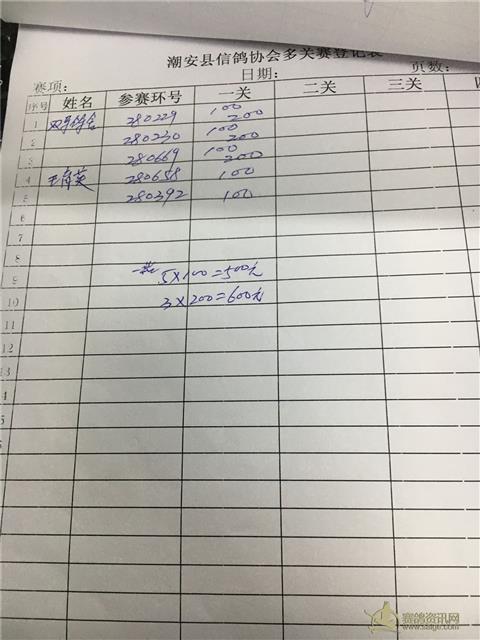 潮安县信鸽协会多关赛登记表
赛项: 日期: 页数:
序号 姓名 参赛环号 一关 二关 三关
1 280229 100 200
2 280230 100 200
3 280669 100 200
4 280658 100
5 280392 100
6
7
8
9 5×100=500元
10 3×200=600元
11
12
13
14
15
赛鸽资讯网
www.saige.com